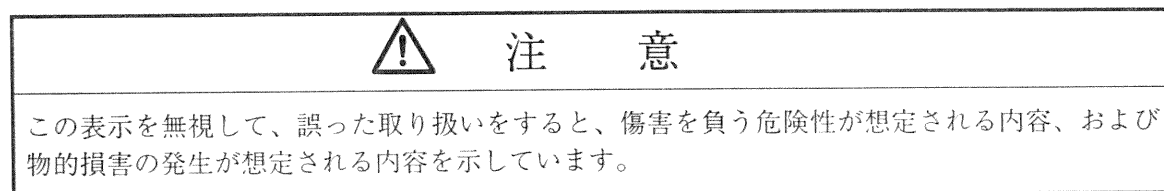 注 意
この表示を無視して、誤った取り扱いをすると、傷害を負う危険性が想定される内容、および
物的損害の発生が想定される内容を示しています。